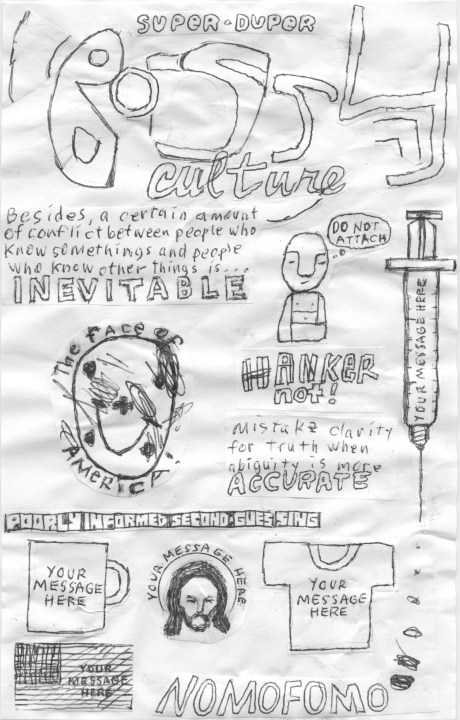 SUPER-DUPER
culture
Besides, a certain amount
of conflict between people who
know somethings and people
who know other things is...
INEVITABLE
DO NOT
ATTACH
YOUR MESSAGE HERE
The Face of
AMERICA.
HANKER
not!
Mistake clarity
for truth when
abiguity is more
ACCURATE
POORLY INFORMED SECOND-GUESSING
YOUR
MESSAGE
HERE
YOUR MESSAGE HERE
YOUR
MESSAGE
HERE
YOUR
MESSAGE
HERE
NOMOFOMO